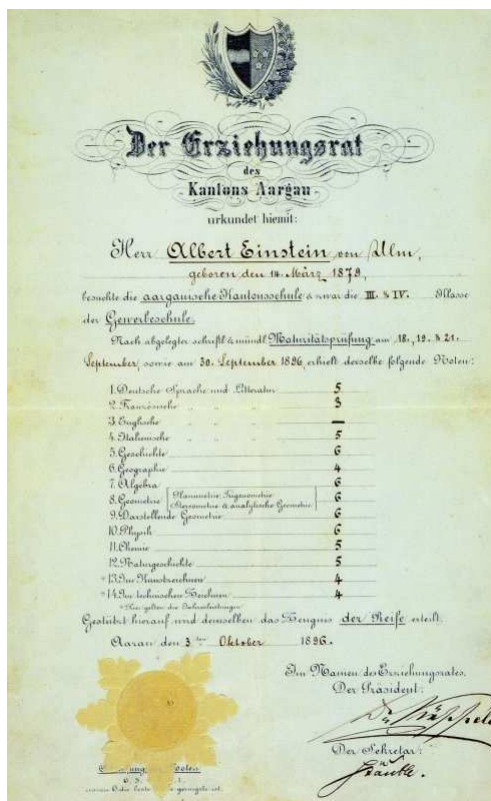 Der Erziehungsrat
des
Kantons Aargau
urkundet hiemit:
Herr Albert Einstein von Ulm,
geboren den 14. März 1879,
besuchte die aargauische Kantonsschule & zwar die III. & IV. Klasse
der Gewerbeschule.
Nach abgelegter schriftl. & mündl. Maturitätsprüfung am 18., 19. & 21.
September, sowie am 30. September 1896, erhielt derselbe folgende Noten:
1. Deutsche Sprache und Litteratur 5
2. Französische " " " 3
3. Englische " " " —
4. Italienische " " " 5
5. Geschichte 6
6. Geographie 4
7. Algebra 6
8. Geometrie [Planimetrie, Trigonometrie 6
Stereometrie & analytische Geometrie]
9. Darstellende Geometrie 6
10. Physik 6
11. Chemie 5
12. Naturgeschichte 5
* 13. Im Kunstzeichnen 4
* 14. Im technischen Zeichnen 4
* Hier gelten die Jahresleistungen
Gestützt hierauf wird demselben das Zeugnis der Reife erteilt.
Aarau den 3ten Oktober 1896.
Im Namen des Erziehungsrates,
Der Präsident:
Der Sekretär: